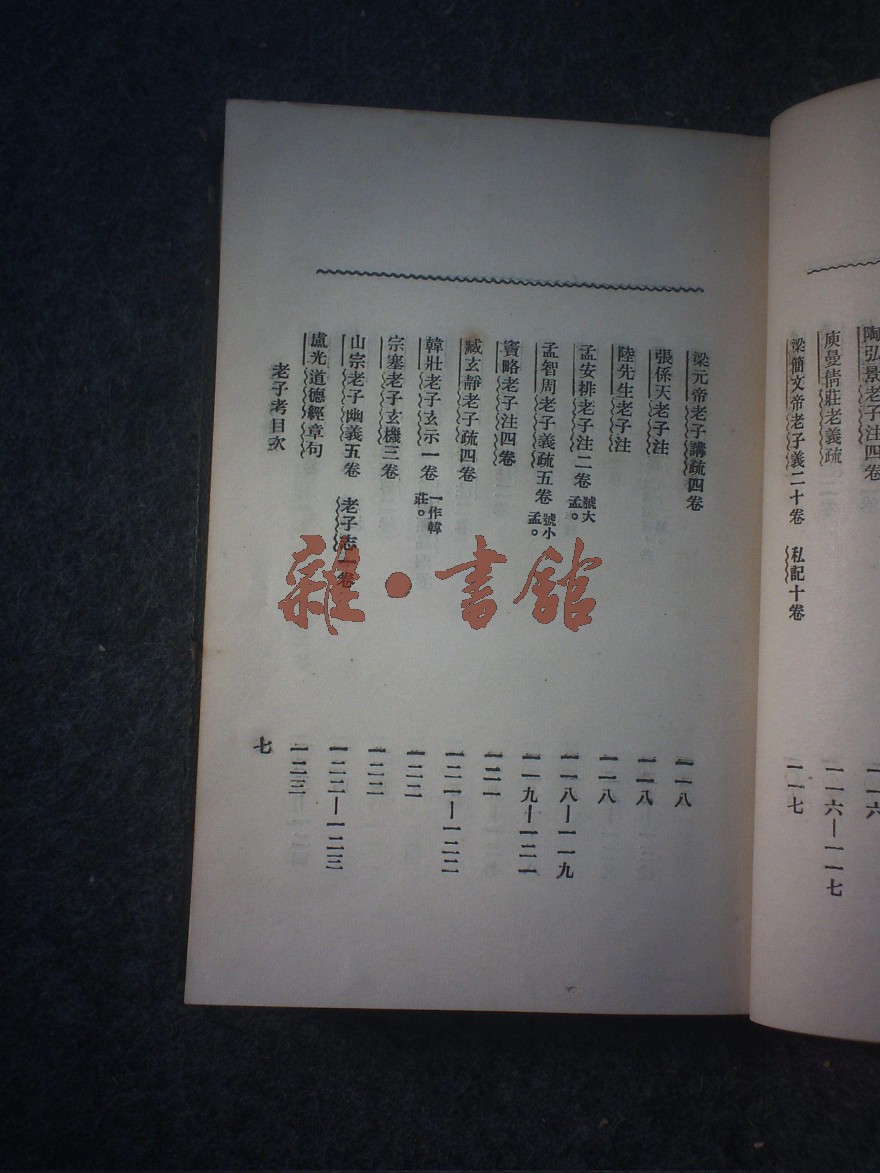 陶弘景老子注四卷
一一六
庾曼倩莊老義疏
一一六—一一七
梁簡文帝老子義二十卷 私記十卷
一一七
梁元帝老子講疏四卷
一一八
張係天老子注
一一八
陸先生老子注
一一八
孟安排老子注二卷 號大孟。
一一八—一一九
孟智周老子義疏五卷 號小孟。
一一九—一二一
竇略老子注四卷
一二一
臧玄靜老子疏四卷
一二一—一二二
韓壯老子玄示一卷 一作韓莊。
一二二
宗塞老子玄機三卷
一二二
山宗老子幽義五卷 老子志一卷
一二二—一二三
盧光道德經章句
一二三
老子考目次
七
雜·書館